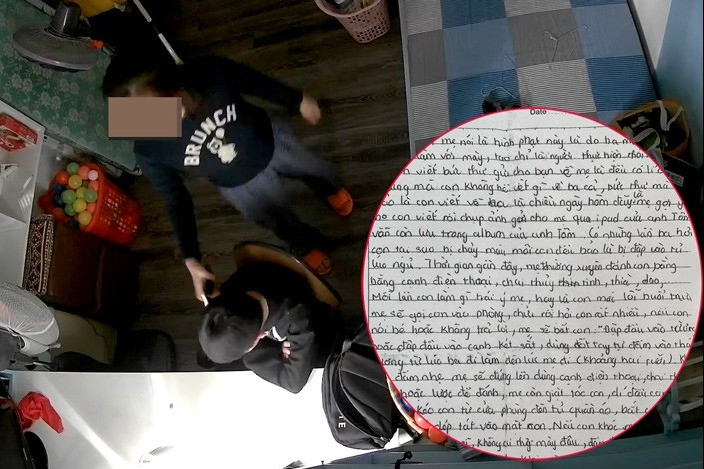 BRUNCH
Date
mẹ nói là hình phạt này là do ba
làm với mày, tao chỉ là người thực hiện
viết bức thư gửi cho bạn vợ mẹ là đều có
mà con không hề viết gì về ba cả, bức thư
là con viết vào chiều ngày hôm đấy mẹ gợi ý
cho con viết rồi chụp ảnh gửi cho mẹ qua ipad của anh Tâm
vẫn còn lưu trong album của anh Tâm. Có những lần ba hỏi
con tại sao bị chảy máu, mỗi con đều bảo là bị đập vào tủ
lúc ngủ. Thời gian gần đây, mẹ thường xuyên đánh con bằng
bằng cạnh điện thoại, chai thủy tinh, thìa, dao,
Mỗi lần con làm gì trái ý mẹ, hay là con mới lỗi buổi trưa
mẹ sẽ gọi con vào phòng, chửi rồi hỏi con rất nhiều, nếu con
nói bé hoặc không trả lời, mẹ sẽ bắt con "Đập đầu vào tường
hoặc đập đầu vào cạnh két sắt, dùng dốt tay tự đấm vào
từ lúc bà đi làm đến lúc mẹ đi (khoảng hai tiếng)
đấm nhẹ mẹ sẽ dùng lên dùng cạnh điện thoại, chai
hoặc lược để đánh, mẹ còn giật tóc con, dí đầu
kéo con từ cửa phòng đến tủ quần áo, bắt
dép tát vào mặt con. Nếu con khóc
không ai thở mày đâu,